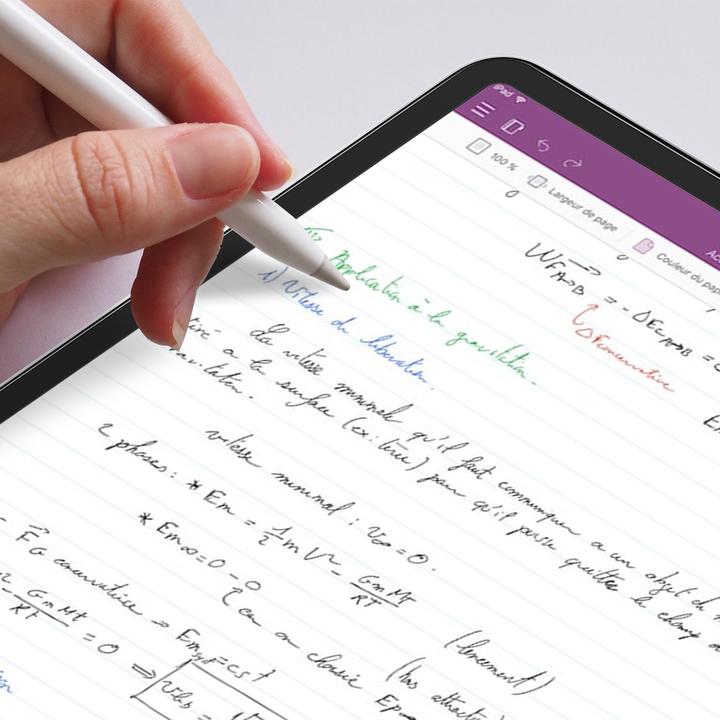 iPad
100 %
Largeur de page
Couleur du pap
Application à la gravitation.
1) Vitesse de libération.
W F A→B = - ΔEc A→B =
ΔF conservative
La vitesse minimale qu'il faut communiquer a un objet de
a la surface (ex: terre) pour qu'il puisse quitter le champ
vitation.
vitesse minimal : v∞ = 0.
2 phases : * Em = 1/2 m V² - G m Mt / RT
* Em∞ = 0 - 0
(car on choisie
(lancement)
FG conservative ⇒ Em = cst
G m Mt / RT = 0 ⇒ Vlib